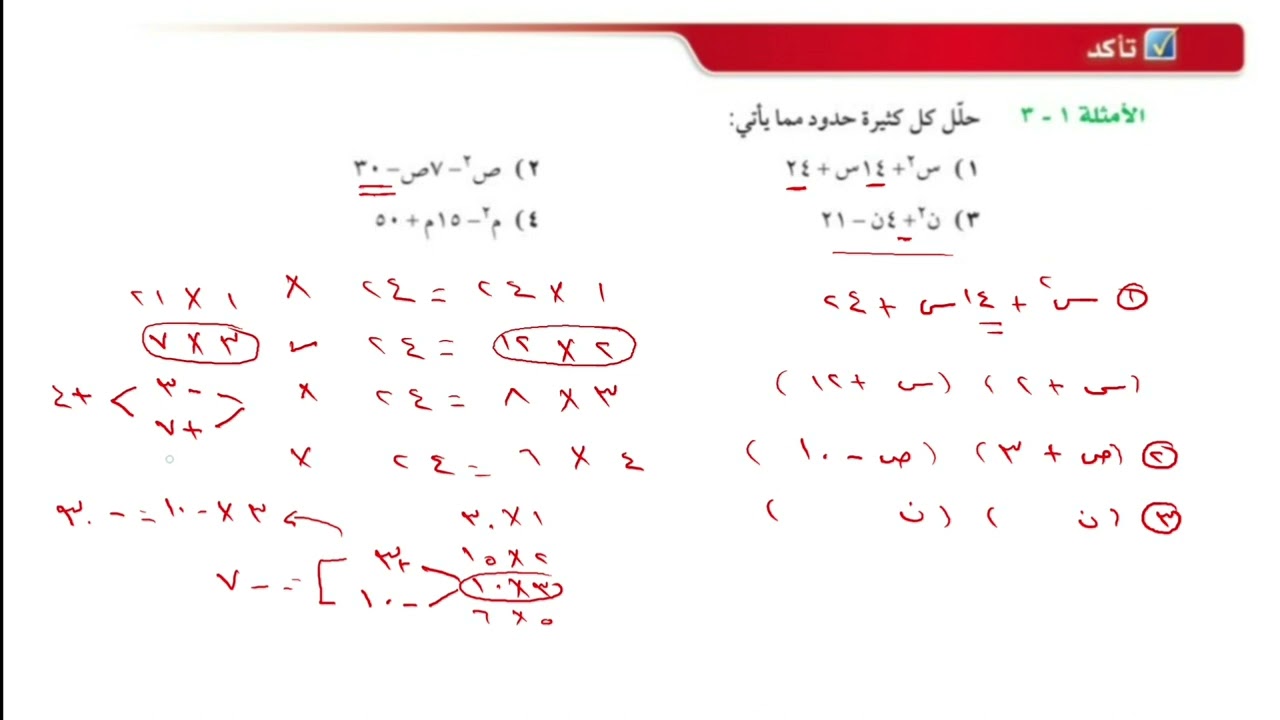 تأكد
الأمثلة ١ - ٣ حلّل كل كثيرة حدود مما يأتي:
١) س٢ + ١٤س + ٢٤
٢) ص٢ - ٧ص - ٣٠
٣) ن٢ + ٤ن - ٢١
٤) م٢ - ١٥م + ٥٠
① س٢ + ١٤س + ٢٤
(س + ٢) (س + ١٢)
② (ص + ٣) (ص - ١٠)
③ (ن ) (ن )
١ × ٢٤ = ٢٤ ×
٢ × ١٢ = ٢٤ ✓
٣ × ٨ = ٢٤ ×
٤ × ٦ = ٢٤ ×
١ × ٣٠
٢ × ١٥
٣ × ١٠
٥ × ٦
+٣
-١٠
] = -٧
٣ × -١٠ = -٣٠
١ × ٢١
٣ × ٧
-٣
+٧
+٤